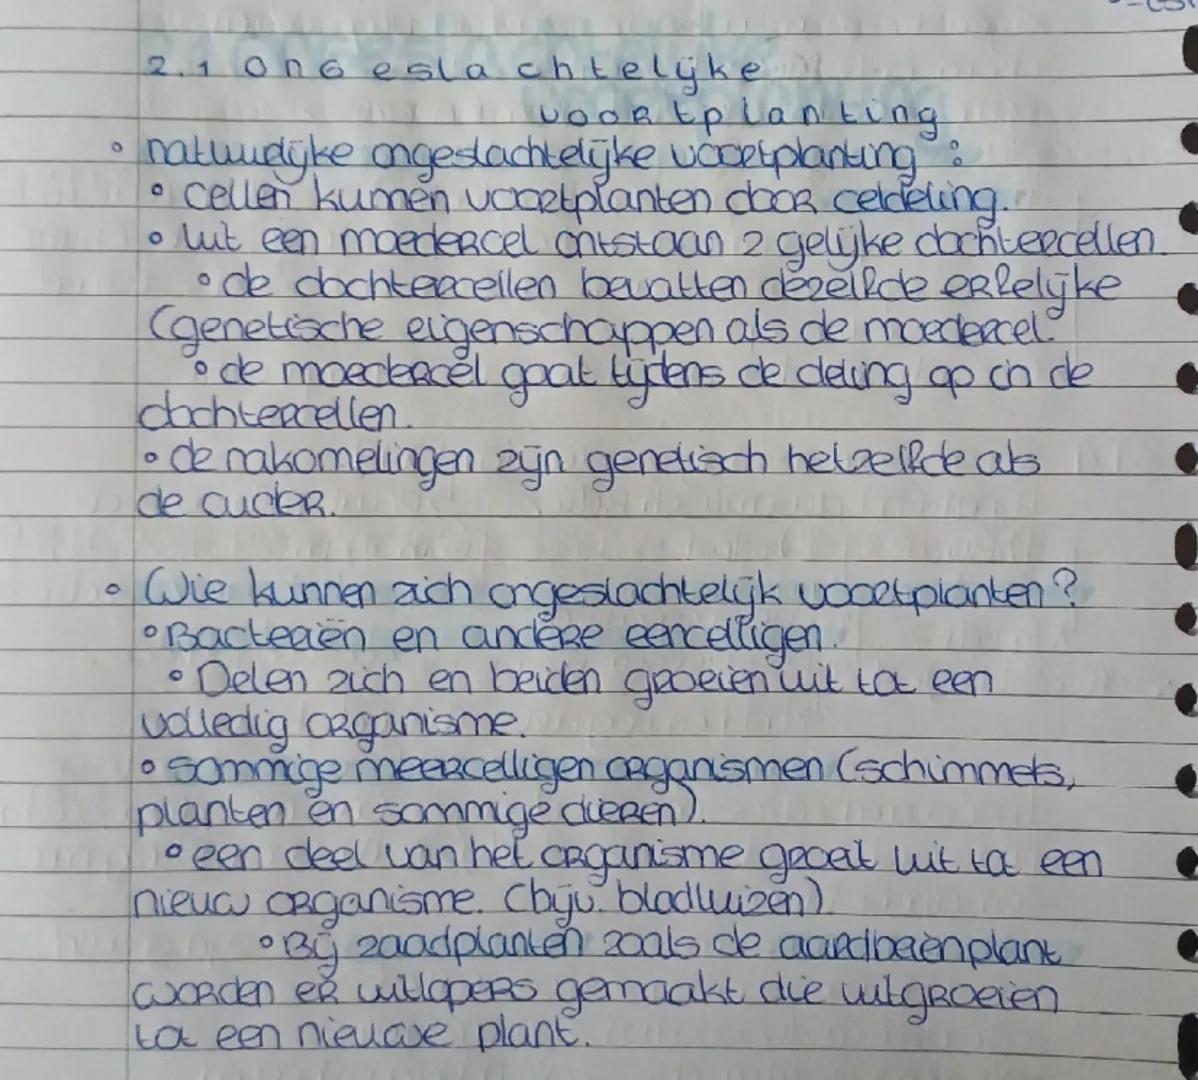 2.1 Ongeslachtelijke
voortplanting
• natuurlijke ongeslachtelijke voortplanting :
• cellen kunnen voortplanten door celdeling.
• uit een moedercel ontstaan 2 gelijke dochtercellen
• de dochtercellen bevatten dezelfde erfelijke
(genetische eigenschappen als de moedercel.
• de moedercel gaat tijdens de deling op in de
dochtercellen.
• de nakomelingen zijn genetisch hetzelfde als
de ouder.
• Wie kunnen zich ongeslachtelijk voortplanten?
• Bacteriën en andere eencelligen.
• Delen zich en beiden groeien uit tot een
volledig organisme.
• sommige meercelligen organismen (schimmels,
planten en sommige dieren).
• een deel van het organisme groeit uit tot een
nieuw organisme. (bijv. bladluizen)
• Bij zaadplanten zoals de aardbeienplant
worden er uitlopers gemaakt die uitgroeien
tot een nieuwe plant.